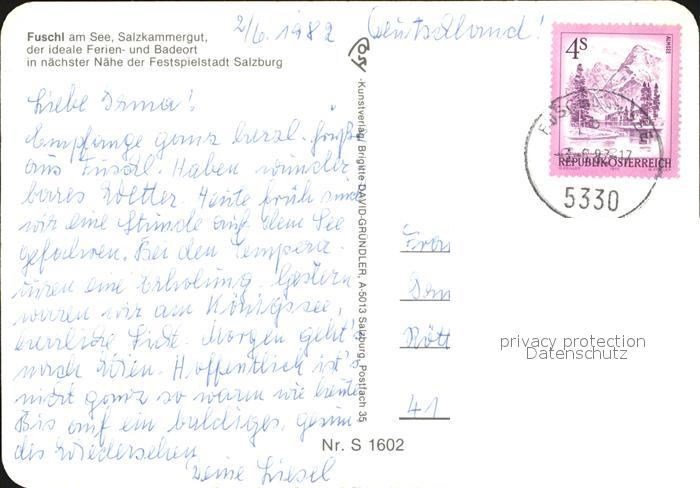 2/6. 1982 Deutschland!
Fuschl am See, Salzkammergut,
der ideale Ferien- und Badeort
in nächster Nähe der Festspielstadt Salzburg
Liebe Irma!
Empfange ganz herzl. Grüße
aus Fuschl. Haben wunder
bares Wetter. Heute früh sind
wir eine Stunde auf dem See
gefahren. Bei den Tempera-
turen eine Erholung. Gestern
waren wir am Königsee,
herrliche Sicht. Morgen geht's
nach Wien. Hoffentlich ist's
nicht ganz so warm wie heute.
Bis auf ein baldiges, gesun
des Wiedersehen
Deine Liesel
-Kunstverlag Brigitte DAVID-GRÜNDLER, A-5013 Salzburg, Postfach 35
Nr. S 1602
4S
ALMSEE
REPUBLIK ÖSTERREICH
5330
Frau
Rött
41
privacy protection
Datenschutz